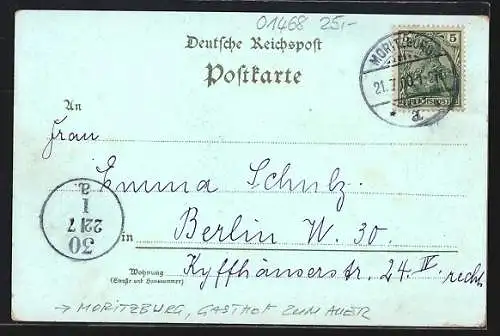 01468 25,-
Deutsche Reichspost
Postkarte
MORITZBURG
21.7.
* a
5
REICHSPOST
An
Frau
Emma Schulz.
in Berlin W. 30.
Wohnung
(Straße und Hausnummer)
Kyffhäuserstr. 24. IV. rechts
30
22/7
1
a.
→ MORITZBURG, GASTHOF ZUM AUER